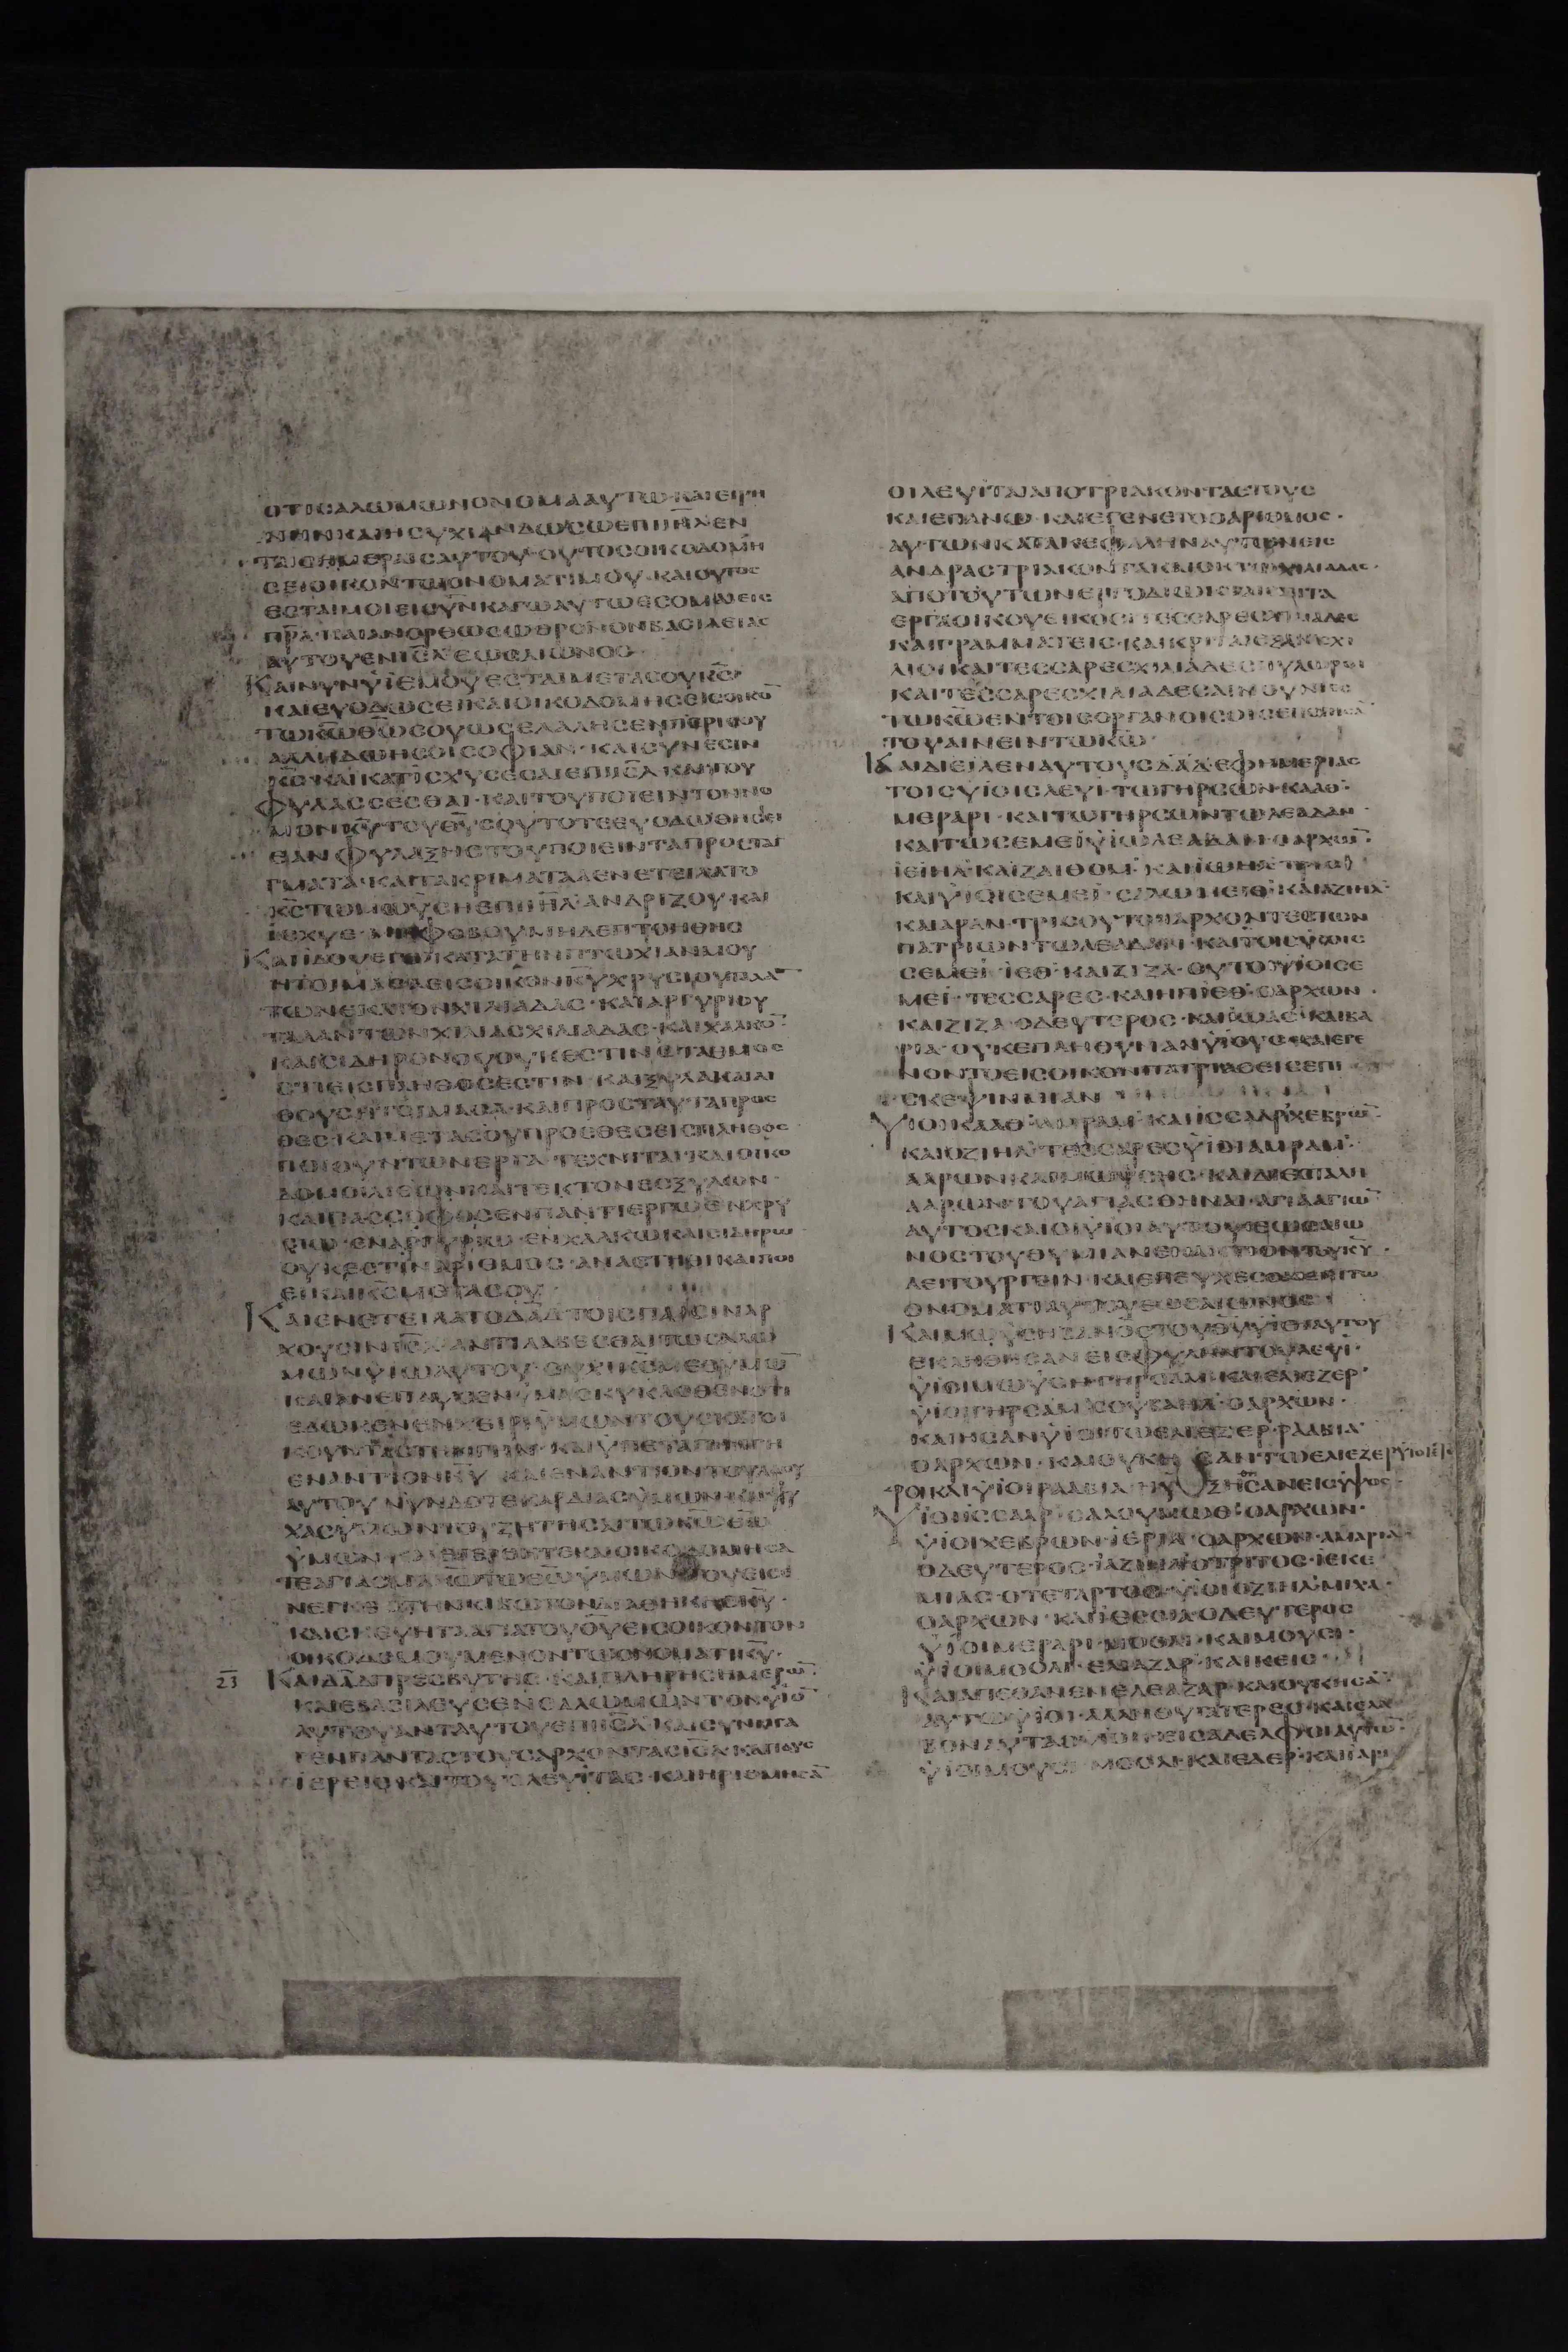 ΟΤΙ CΑΛΩΜΩΝ ΟΝΟΜΑ ΑΥΤΩ· ΚΑΙ ΕΙΡΗ
ΝΗΝ ΚΑΙ ΗCΥΧΙΑΝ ΔΩCΩ ΕΠΙ ΙΗΛ ΕΝ
ΤΑΙC ΗΜΕΡΑΙC ΑΥΤΟΥ· ΟΥΤΟC ΟΙΚΟΔΟΜΗ
CΕΙ ΟΙΚΟΝ ΤΩ ΟΝΟΜΑΤΙ ΜΟΥ· ΚΑΙ ΟΥΤΟC
ΕCΤΑΙ ΜΟΙ ΕΙC ΥΝ ΚΑΓΩ ΑΥΤΩ ΕCΟΜΑΙ ΕΙC
ΠΡΑ· ΚΑΙ ΑΝΟΡΘΩCΩ ΘΡΟΝΟΝ ΒΑCΙΛΕΙΑC
ΑΥΤΟΥ ΕΝ ΙCΛ ΕΩC ΑΙΩΝΟC·
ΚΑΙ ΝΥΝ ΥΙΕ ΜΟΥ ΕCΤΑΙ ΜΕΤΑ CΟΥ ΚC·
ΚΑΙ ΕΥΟΔΩCΕΙ ΚΑΙ ΟΙΚΟΔΟΜΗCΕΙC ΟΙΚΟ
ΤΩ ΚΩ ΘΩ CΟΥ ΩC ΕΛΑΛΗCΕΝ ΠΕΡΙ CΟΥ
ΑΛΛΑ ΔΩΗ CΟΙ CΟΦΙΑΝ· ΚΑΙ CΥΝΕCΙΝ
ΚC· ΚΑΙ ΚΑΤΙCΧΥCΕ CΑΙ ΕΠΙ ΙCΛ ΚΑΙ ΤΟΥ
ΦΥΛΑCCΕCΘΑΙ· ΚΑΙ ΤΟΥ ΠΟΙΕΙΝ ΤΟΝ ΝΟ
ΜΟΝ ΚΥ ΤΟΥ ΘΥ CΟΥ ΤΟΤΕ ΕΥΟΔΩΘΗCΕΙ
ΕΑΝ ΦΥΛΑΞΗC ΤΟΥ ΠΟΙΕΙΝ ΤΑ ΠΡΟCΤΑ
ΓΜΑΤΑ· ΚΑΙ ΤΑ ΚΡΙΜΑΤΑ Α ΕΝΕΤΕΙΛΑΤΟ
ΚC ΤΩ ΜΩΥCΗ ΕΠΙ ΙΗΛ· ΑΝΔΡΙΖΟΥ· ΚΑΙ
ΙCΧΥΕ· ΜΗ ΦΟΒΟΥ ΜΗΔΕ ΠΤΟΗΘΗC
ΚΑΙ ΙΔΟΥ ΕΓΩ ΚΑΤΑ ΤΗΝ ΠΤΩΧΙΑΝ ΜΟΥ
ΗΤΟΙΜΑCΑ ΕΙC ΟΙΚΟΝ ΚΥ ΧΡΥCΙΟΥ ΤΑΛΑ
ΤΩΝ ΕΚΑΤΟΝ ΧΙΛΙΑΔΑC· ΚΑΙ ΑΡΓΥΡΙΟΥ
ΤΑΛΑΝΤΩΝ ΧΙΛΙΑC ΧΙΛΙΑΔΑC· ΚΑΙ ΧΑΛΚΟ
ΚΑΙ CΙΔΗΡΟΝ ΟΥ ΟΥΚ ΕCΤΙΝ CΤΑΘΜΟC
ΟΤΙ ΕΙC ΠΛΗΘΟC ΕCΤΙΝ· ΚΑΙ ΞΥΛΑ ΚΑΙ ΛΙ
ΘΟΥC ΗΤΟΙΜΑCΑ· ΚΑΙ ΠΡΟC ΤΑΥΤΑ ΠΡΟC
ΘΕC· ΚΑΙ ΜΕΤΑ CΟΥ ΠΡΟCΘΕC ΕΙC ΠΛΗΘΟC
ΠΟΙΟΥΝΤΩΝ ΕΡΓΑ· ΤΕΧΝΙΤΑΙ· ΚΑΙ ΟΙΚΟ
ΔΟΜΟΙ ΛΙΘΩΝ ΚΑΙ ΤΕΚΤΟΝΕC ΞΥΛΩΝ·
ΚΑΙ ΠΑC CΟΦΟC ΕΝ ΠΑΝΤΙ ΕΡΓΩ ΕΝ ΧΡΥ
CΙΩ· ΕΝ ΑΡΓΥΡΙΩ· ΕΝ ΧΑΛΚΩ ΚΑΙ CΙΔΗΡΩ
ΟΥΚ ΕCΤΙΝ ΑΡΙΘΜΟC· ΑΝΑCΤΗΘΙ ΚΑΙ ΠΟΙ
ΕΙ ΚΑΙ ΚC ΜΕΤΑ CΟΥ·
ΚΑΙ ΕΝΕΤΕΙΛΑΤΟ ΔΑΔ ΤΟΙC ΠΑCΙΝ ΑΡ
ΧΟΥCΙΝ ΙCΛ ΑΝΤΙΛΑΒΕCΘΑΙ ΤΩ CΑΛΩ
ΜΩΝ ΥΙΩ ΑΥΤΟΥ· ΟΥΧΙ ΚC ΜΕΘ ΥΜΩ
ΚΑΙ ΑΝΕΠΑΥCΕΝ ΥΜΑC ΚΥΚΛΟΘΕΝ ΟΤΙ
ΕΔΩΚΕΝ ΕΝ ΧΕΙΡΙ ΥΜΩΝ ΤΟΥC ΚΑΤΟΙ
ΚΟΥΝΤΑC ΤΗΝ ΓΗΝ· ΚΑΙ ΥΠΕΤΑΓΗ Η ΓΗ
ΕΝΑΝΤΙΟΝ ΚΥ ΚΑΙ ΕΝΑΝΤΙΟΝ ΤΟΥ ΛΑΟΥ
ΑΥΤΟΥ ΝΥΝ ΔΟΤΕ ΚΑΡΔΙΑC ΥΜΩΝ ΚΑΙ ΨΥ
ΧΑC ΥΜΩΝ ΤΟΥ ΖΗΤΗCΑΙ ΤΩ ΚΩ ΘΩ
ΥΜΩΝ
ΤΕ ΑΓΙΑCΜΑ ΚΩ ΤΩ ΘΩ ΥΜΩΝ ΤΟΥ ΕΙCΕ
ΝΕΓΚΕ ΤΗΝ ΚΙΒΩΤΟΝ ΔΙΑΘΗΚΗC ΚΥ·
ΚΑΙ CΚΕΥΗ ΤΑ ΑΓΙΑ ΤΟΥ ΘΥ ΕΙC ΟΙΚΟΝ ΤΟΝ
ΟΙΚΟΔΟΜΟΥΜΕΝΟΝ ΤΩ ΟΝΟΜΑΤΙ ΚΥ·
23 ΚΑΙ ΔΑΔ ΠΡΕCΒΥΤΗC· ΚΑΙ ΠΛΗΡΗC ΗΜΕΡΩ·
ΚΑΙ ΕΒΑCΙΛΕΥCΕΝ CΑΛΩΜΩΝ ΤΟΝ ΥΙΟ
ΑΥΤΟΥ ΑΝΤ ΑΥΤΟΥ ΕΠΙ ΙCΛ· ΚΑΙ CΥΝΗΓΑ
ΓΕΝ ΠΑΝΤΑC ΤΟΥC ΑΡΧΟΝΤΑC ΙCΛ ΚΑΙ ΤΟΥC
ΙΕΡΕΙC· ΚΑΙ ΤΟΥC ΛΕΥΙΤΑC· ΚΑΙ ΗΡΙΘΜΗCΑ
ΟΙ ΛΕΥΙΤΑΙ ΑΠΟ ΤΡΙΑΚΟΝΤΑΕΤΟΥC
ΚΑΙ ΕΠΑΝΩ· ΚΑΙ ΕΓΕΝΕΤΟ Ο ΑΡΙΘΜΟC·
ΑΥΤΩΝ ΚΑΤΑ ΚΕΦΑΛΗΝ ΑΥΤΩΝ ΕΙC
ΑΝΔΡΑC ΤΡΙΑΚΟΝΤΑ ΚΑΙ ΟΚΤΩ ΧΙΛΙΑΔΑC·
ΑΠΟ ΤΟΥΤΩΝ ΕΡΓΟΔΙΩΚΤΑΙ ΕΠΙ ΤΑ
ΕΡΓΑ ΟΙΚΟΥ ΕΙΚΟCΙ ΤΕCCΑΡΕC ΧΙΛΙΑΔΕC
ΚΑΙ ΓΡΑΜΜΑΤΕΙC· ΚΑΙ ΚΡΙΤΑΙ ΕΞΑΚΙCΧΙ
ΛΙΟΙ ΚΑΙ ΤΕCCΑΡΕC ΧΙΛΙΑΔΕC ΠΥΛΩΡΟΙ
ΚΑΙ ΤΕCCΑΡΕC ΧΙΛΙΑΔΕC ΑΙΝΟΥΝΤΕC
ΤΩ ΚΩ ΕΝ ΤΟΙC ΟΡΓΑΝΟΙC ΟΙC ΕΠΟΙΗCΑ
ΤΟΥ ΑΙΝΕΙΝ ΤΩ ΚΩ·
ΚΑΙ ΔΙΕΙΛΕΝ ΑΥΤΟΥC ΔΑΔ ΕΦΗΜΕΡΙΑC
ΤΟΙC ΥΙΟΙC ΛΕΥΙ· ΤΩ ΓΗΡCΩΝ· ΚΑΑΘ·
ΜΕΡΑΡΙ· ΚΑΙ ΤΩ ΓΗΡCΩΝ ΤΩ ΛΕΑΔΑΝ·
ΚΑΙ ΤΩ CΕΜΕΙ ΥΙΩ ΛΕΑΔΑΝ· Ο ΑΡΧΩ·
ΙΕΙΗΛ· ΚΑΙ ΖΑΙΘΟΜ· ΚΑΙ ΙΩΗΛ· ΤΡΕΙC
ΚΑΙ ΥΙΟΙ CΕΜΕΙ· CΑΛΩΜΕΙΘ· ΚΑΙ ΑΖΙΗΛ·
ΚΑΙ ΑΡΑΝ· ΤΡΙC ΟΥΤΟΙ ΑΡΧΟΝΤΕC ΤΩΝ
ΠΑΤΡΙΩΝ ΤΩ ΛΕΑΔΑΝ· ΚΑΙ ΤΟΙC ΥΙΟΙC
CΕΜΕΙ· ΙΕΘ· ΚΑΙ ΖΙΖΑ· ΟΥΤΟΙ ΥΙΟΙ CΕ
ΜΕΙ· ΤΕCCΑΡΕC· ΚΑΙ ΗΝ ΙΕΘ· Ο ΑΡΧΩΝ·
ΚΑΙ ΖΙΖΑ· Ο ΔΕΥΤΕΡΟC· ΚΑΙ ΙΩΑC· ΚΑΙ ΒΑ
ΡΙΑ· ΟΥΚ ΕΠΛΗΘΥΝΑΝ ΥΙΟΥC· ΚΑΙ ΕΓΕ
ΝΟΝΤΟ ΕΙC ΟΙΚΟΝ ΠΑΤΡΙΑC ΕΙC ΕΠΙ
CΚΕΨΙΝ ΜΙΑΝ
ΥΙΟΙ ΚΑΑΘ· ΑΜΡΑΜ· ΚΑΙ ΙCCΑΑΡ· ΧΕΒΡΩ·
ΚΑΙ ΟΖΙΗΛ· ΤΕCCΑΡΕC ΥΙΟΙ ΑΜΡΑΜ·
ΑΑΡΩΝ ΚΑΙ ΜΩΥCΗC· ΚΑΙ ΔΙΕCΤΑΛΗ
ΑΑΡΩΝ· ΤΟΥ ΑΓΙΑCΘΗΝΑΙ· ΑΓΙΑ ΑΓΙΩ
ΑΥΤΟC ΚΑΙ ΟΙ ΥΙΟΙ ΑΥΤΟΥ ΕΩC ΑΙΩ
ΝΟC ΤΟΥ ΘΥΜΙΑΝ ΕΝΑΝΤΙΟΝ ΤΟΥ ΚΥ·
ΛΕΙΤΟΥΡΓΕΙΝ· ΚΑΙ ΕΠΕΥΧΕCΘΑΙ ΕΠΙ ΤΩ
ΟΝΟΜΑΤΙ ΑΥΤΟΥ ΕΩC ΑΙΩΝΟC
ΚΑΙ ΜΩΥCΗ ΑΝΟC ΤΟΥ ΘΥ ΥΙΟΙ ΑΥΤΟΥ
ΕΚΛΗΘΗCΑΝ ΕΙC ΦΥΛΗΝ ΤΟΥ ΛΕΥΙ·
ΥΙΟΙ ΜΩΥCΗ· ΓΗΡCΑΜ· ΚΑΙ ΕΛΙΕΖΕΡ·
ΥΙΟΙ ΓΗΡCΑΜ· CΟΥΒΑΗΛ· Ο ΑΡΧΩΝ·
ΚΑΙ ΗCΑΝ ΥΙΟΙ ΤΩ ΕΛΙΕΖΕΡ· ΡΑΑΒΙΑ·
Ο ΑΡΧΩΝ· ΚΑΙ ΟΥΚ ΗCΑΝ ΤΩ ΕΛΙΕΖΕΡ ΥΙΟΙ ΕΤΕ
ΡΟΙ ΚΑΙ ΥΙΟΙ ΡΑΑΒΙΑ ΗΥΞΗΘΗCΑΝ ΕΙC ΥΨΟC·
ΥΙΟΙ ΙCCΑΑΡ· CΑΛΟΥΜΩΘ· Ο ΑΡΧΩΝ·
ΥΙΟΙ ΧΕΒΡΩΝ· ΙΕΡΙΑ· Ο ΑΡΧΩΝ· ΑΜΑΡΙΑ·
Ο ΔΕΥΤΕΡΟC· ΙΑΖΙΗΛ· Ο ΤΡΙΤΟC· ΙΕΚΕ
ΜΙΑC· Ο ΤΕΤΑΡΤΟC· ΥΙΟΙ ΟΖΙΗΛ· ΜΙΧΑ·
Ο ΑΡΧΩΝ· ΚΑΙ ΙΕCΙΑ· Ο ΔΕΥΤΕΡΟC
ΥΙΟΙ ΜΕΡΑΡΙ· ΜΟΟΛΙ· ΚΑΙ ΜΟΥCΙ·
ΥΙΟΙ ΜΟΟΛΙ· ΕΛΕΑΖΑΡ· ΚΑΙ ΚΕΙC·
ΚΑΙ ΑΠΕΘΑΝΕΝ ΕΛΕΑΖΑΡ· ΚΑΙ ΟΥΚ ΗCΑ
ΑΥΤΩ ΥΙΟΙ· ΑΛΛ Η ΘΥΓΑΤΕΡΕC· ΚΑΙ ΕΛΑ
ΒΟΝ ΑΥΤΑC ΥΙΟΙ ΚΕΙC ΑΔΕΛΦΟΙ ΑΥΤΩ·
ΥΙΟΙ ΜΟΥCΙ· ΜΟΟΛΙ· ΚΑΙ ΕΔΕΡ· ΚΑΙ ΙΑΡΙ